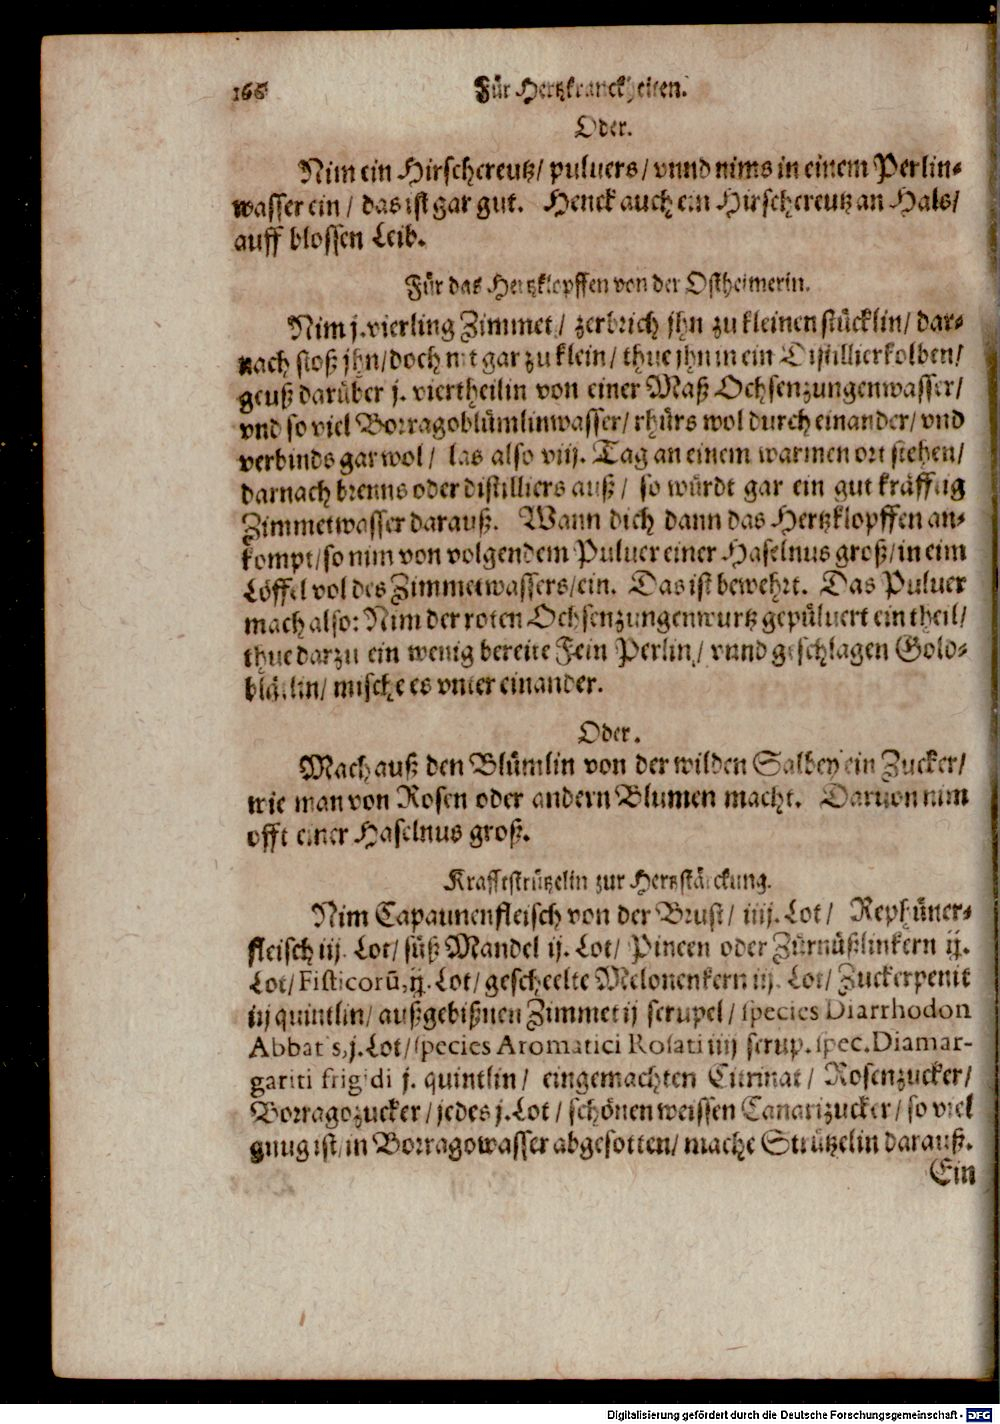 166 Für Hertzkranckheiten.
Oder.
Nim ein Hirschcreutz/ puluers/ vnnd nims in einem Perlin-
wasser ein/ das ist gar gut. Henck auch ein Hirschcreutz an Hals/
auff blossen Leib.
Für das Hertzklopffen von der Ostheimerin.
Nim j. vierling Zimmet/ zerbrich jhn zu kleinen stücklin/ dar-
nach stoß jhn/ doch nit gar zu klein/ thue jhn in ein Distillierkolben/
geuß darüber j. viertheilin von einer Maß Ochsenzungenwasser/
vnd so viel Borragoblümlinwasser/ rhürs wol durch einander/ vnd
verbinds gar wol/ las also viij. Tag an einem warmen ort stehen/
darnach brenns oder distilliers auß/ so würdt gar ein gut kräfftig
Zimmetwasser darauß. Wann dich dann das Hertzklopffen an-
kompt/ so nim von volgendem Puluer einer Haselnus groß/ in eim
Löffel vol des Zimmetwassers/ ein. Das ist bewehrt. Das Puluer
mach also: Nim der roten Ochsenzungenwurtz gepüluert ein theil/
thue darzu ein wenig bereite Fein Perlin/ vnnd geschlagen Gold-
blätlin/ mische es vnter einander.
Oder.
Mach auß den Blümlin von der wilden Salbey ein Zucker/
wie man von Rosen oder andern Blumen macht. Daruon nim
offt einer Haselnus groß.
Krafftstrützelin zur Hertzstärckung.
Nim Capaunenfleisch von der Brust/ iiij. Lot/ Rephüner-
fleisch iij. Lot/ süß Mandel ij. Lot/ Pineen oder Zürnüßlinkern ij.
Lot/ Fisticorū, ij. Lot/ gescheelte Melonenkern iij. Lot/ Zuckerpenit
iij quintlin/ außgebißnen Zimmet ij scrupel/ species Diarrhodon
Abbatis, j. Lot/ species Aromatici Rosati iiij scrup. spec. Diamar-
gariti frigidi j. quintlin/ eingemachten Citrinat/ Rosenzucker/
Borragozucker/ jedes j. Lot/ schönen weissen Canarizucker/ so viel
gnug ist/ in Borragowasser abgesotten/ mache Strützelin darauß.
Ein
Digitalisierung gefördert durch die Deutsche Forschungsgemeinschaft - DFG